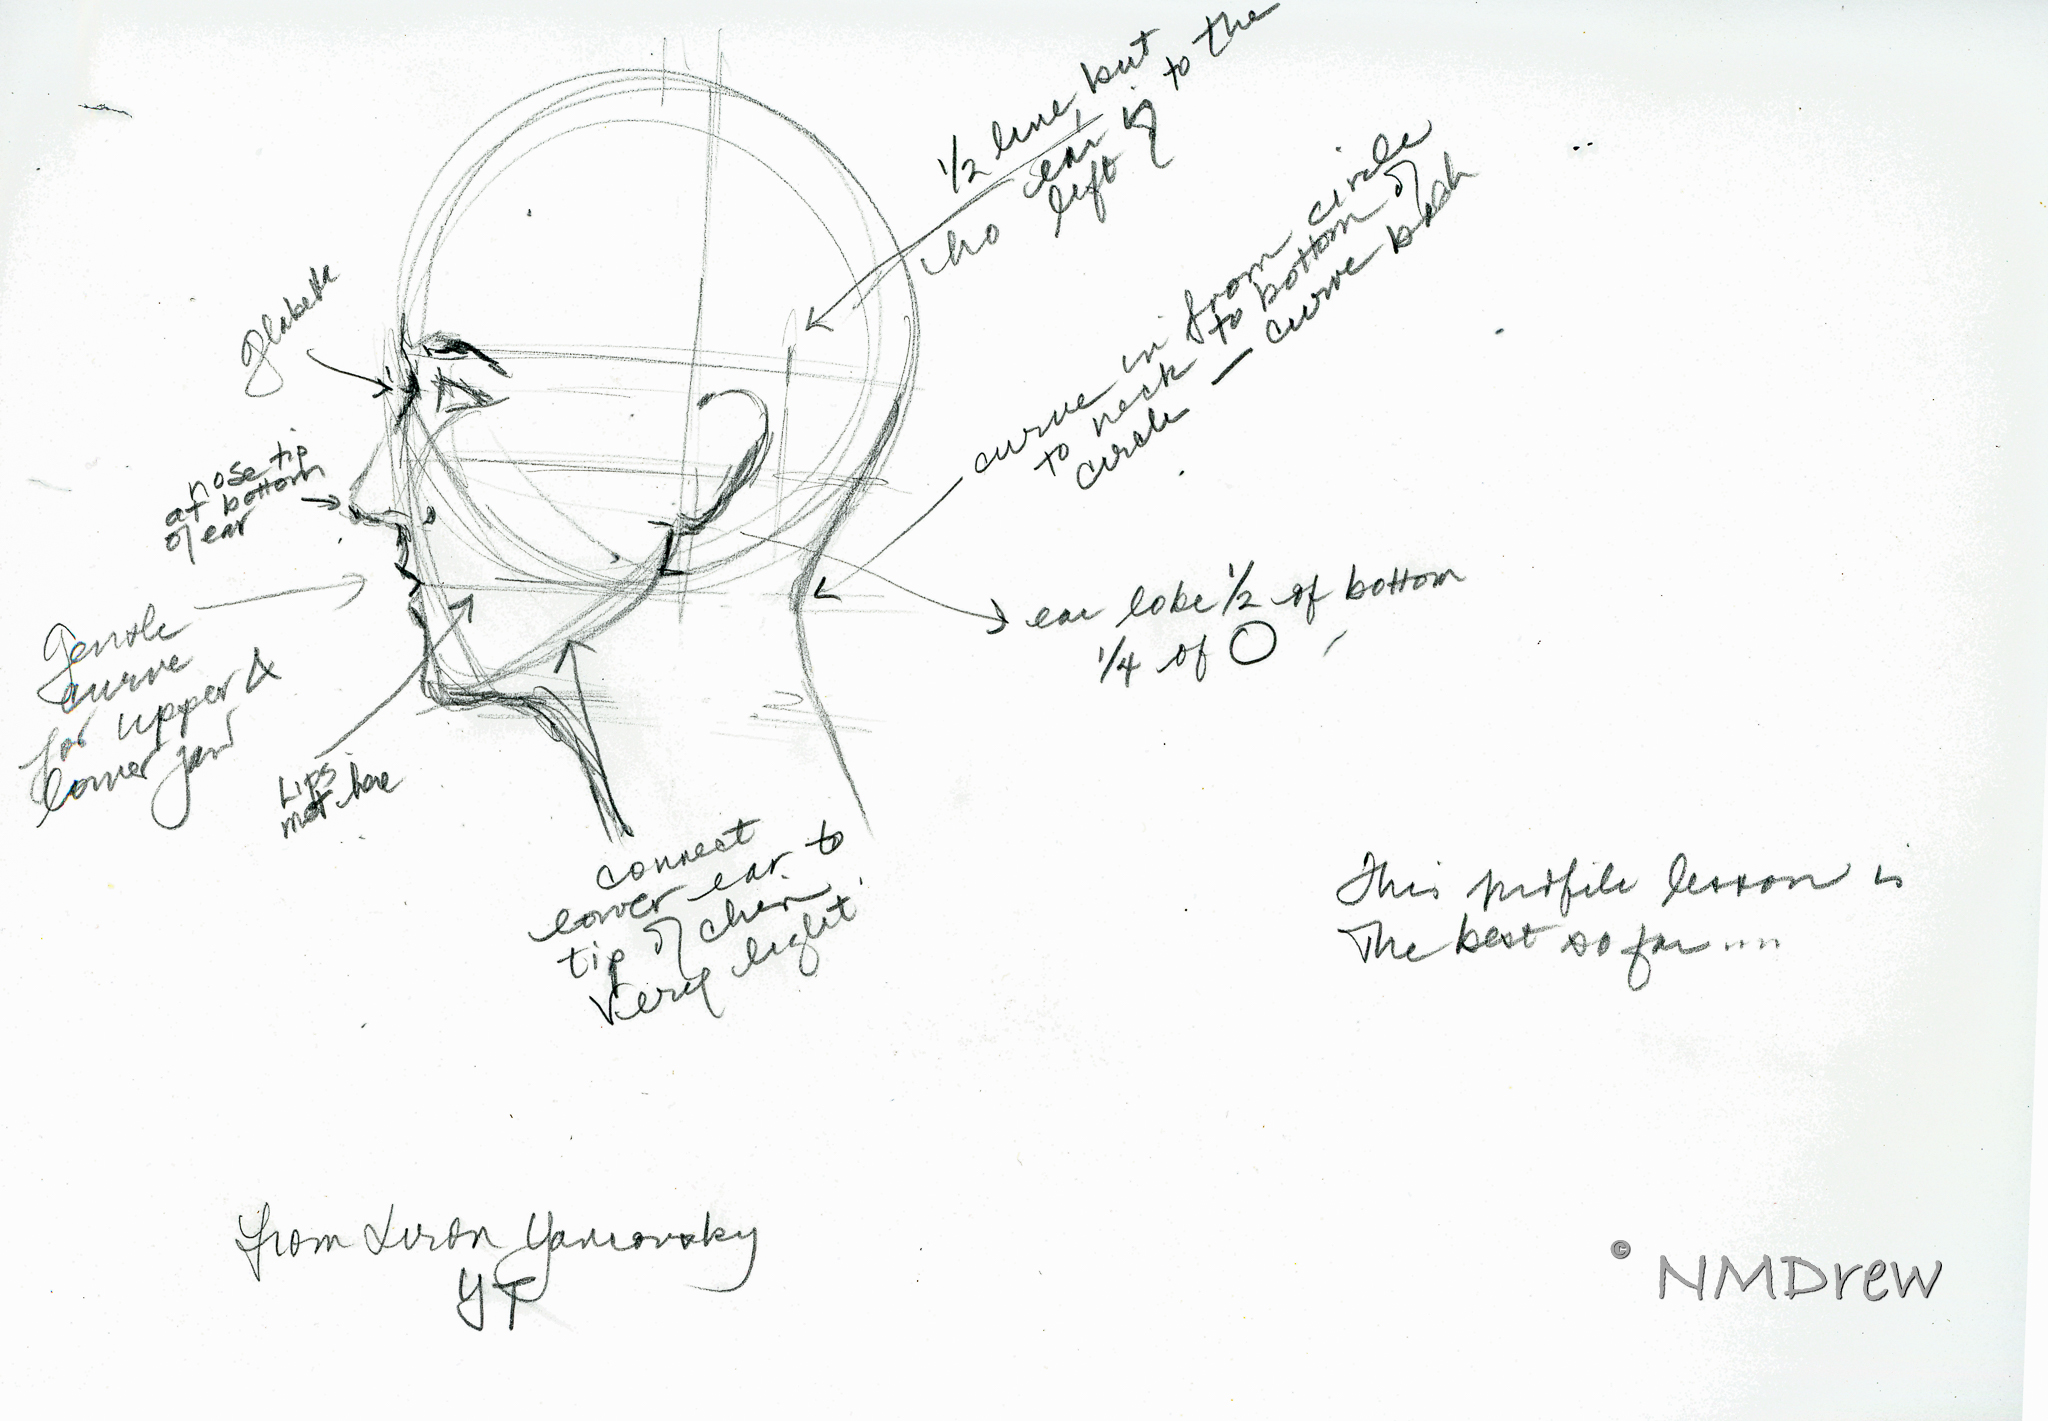 1/2 line, but
ear is to the
left
curve in from circle
to neck to bottom of
circle — curve back
glabella
nose tip
at bottom
of ear
ear lobe 1/2 of bottom
1/4 of O
Gentle
curve
for upper &
lower jaw
Lips
meet here
connect
lower ear to
tip of chin
very light
This profile lesson is
The best so far....
from Liron Yanconsky
YT
© NMDrew